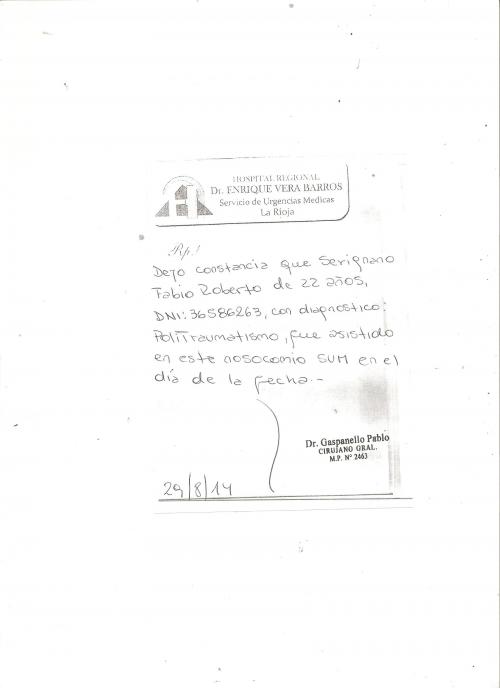 HOSPITAL REGIONAL
Dr. ENRIQUE VERA BARROS
Servicio de Urgencias Medicas
La Rioja
Rp/
Dejo constancia que Serignano
Fabio Roberto de 22 años,
DNI: 36586263, con diagnostico:
PoliTraumatismo, fue asistido
en este nosocomio SUM en el
día de la fecha.-
Dr. Gaspanello Pablo
CIRUJANO GRAL.
M.P. Nº 2463
29/8/14